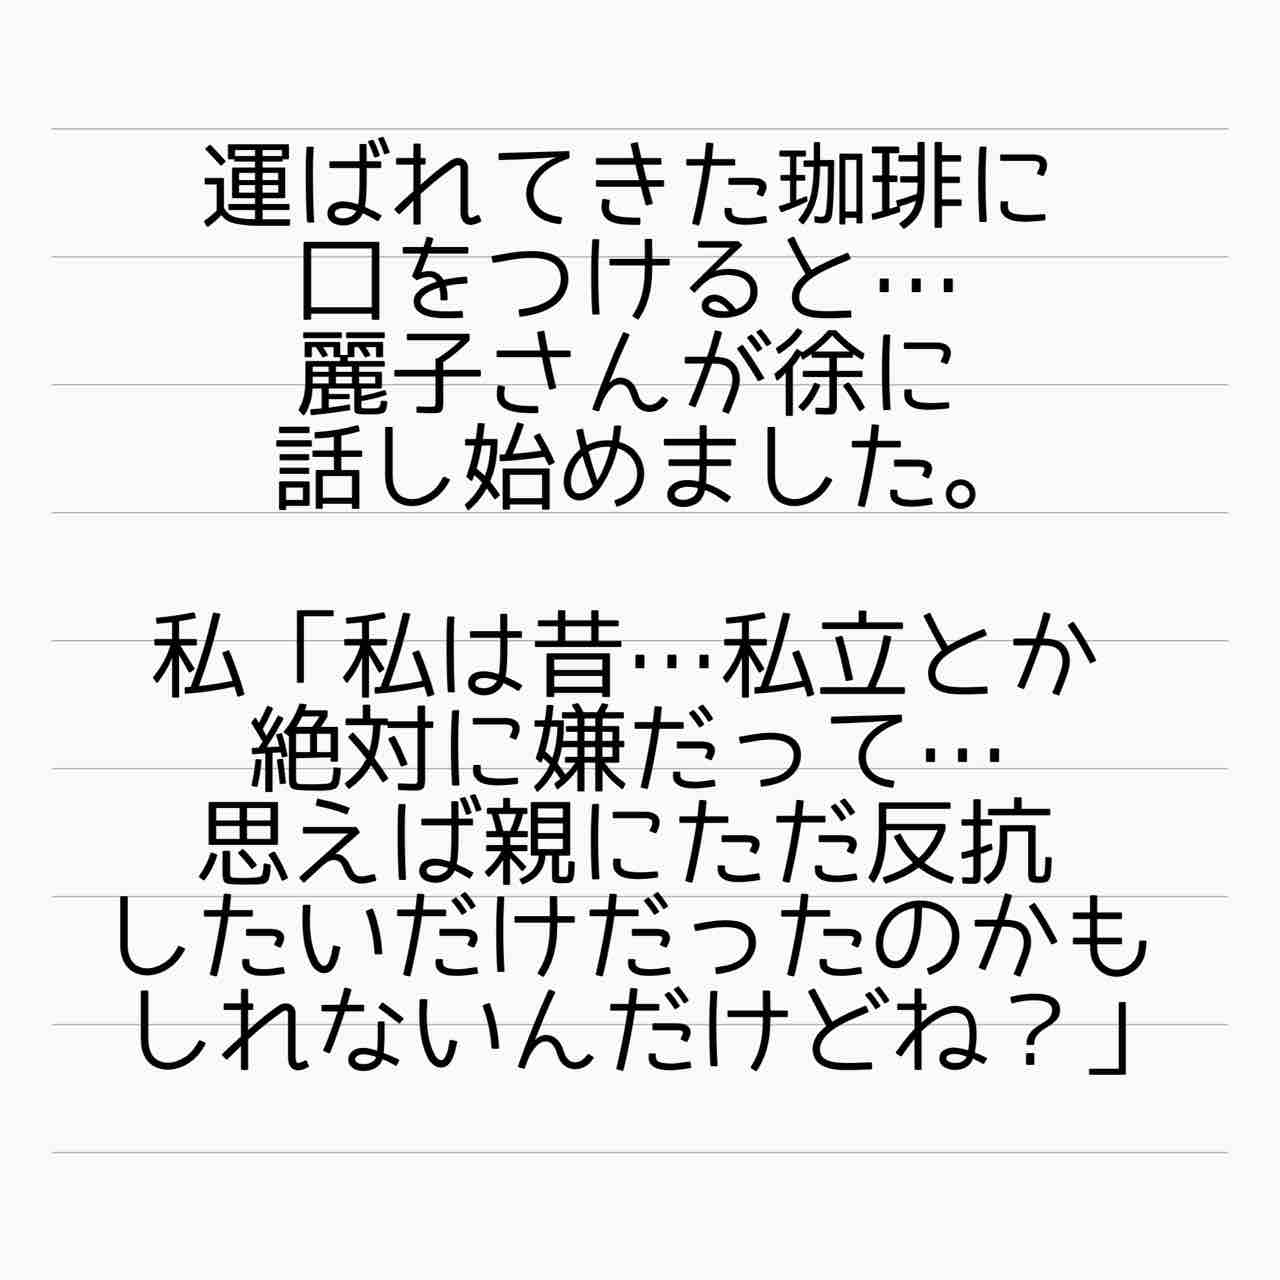 運ばれてきた珈琲に
口をつけると…
麗子さんが徐に
話し始めました。
私「私は昔…私立とか
絶対に嫌だって…
思えば親にただ反抗
したいだけだったのかも
しれないんだけどね？」